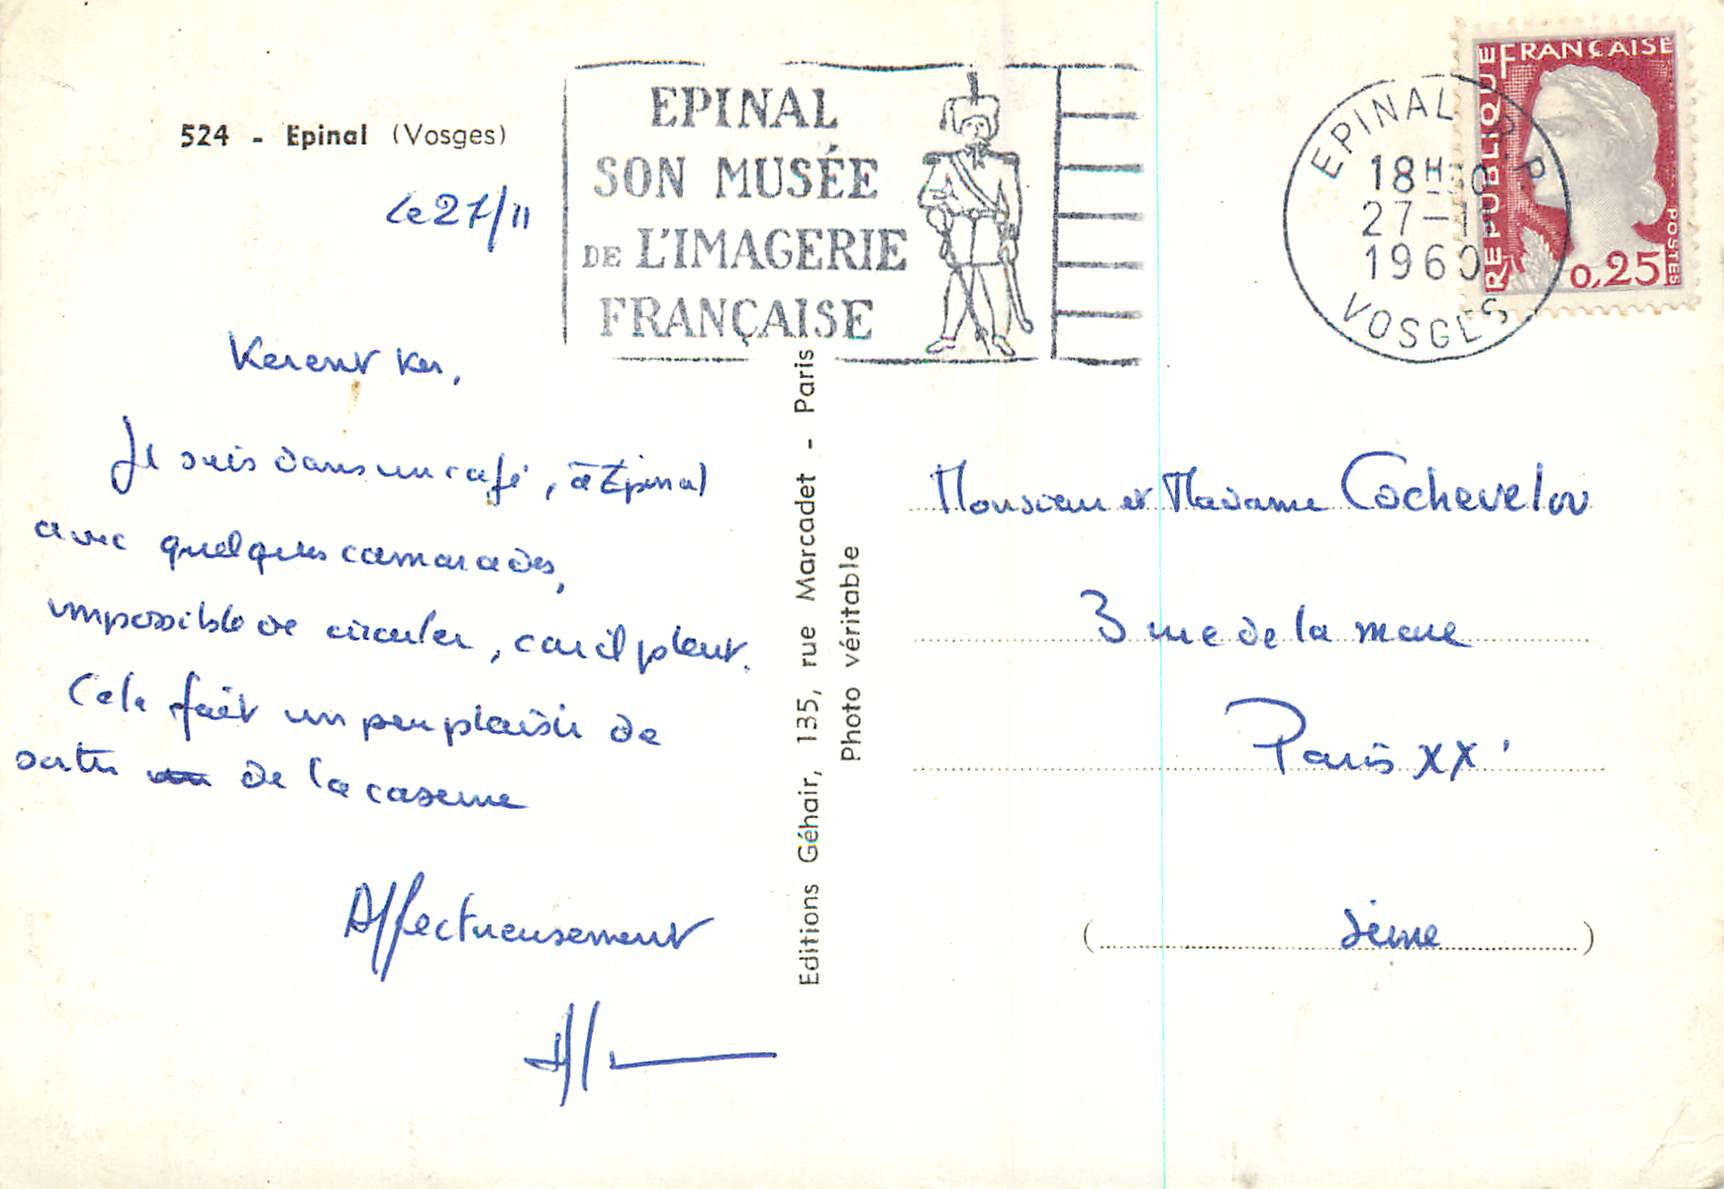 524 - Epinal (Vosges)
le 27/11
EPINAL
SON MUSÉE
DE L'IMAGERIE
FRANÇAISE
EPINAL R.P
18H30
27-11
1960
VOSGES
REPUBLIQUE FRANÇAISE
POSTES
0,25
Kerent Ker,
Je suis dans un café, à Epinal
avec quelques camarades,
impossible de circuler, car il pleut.
Cela fait un peu plaisir de
sortir de la caserne
Affectueusement
Editions Géhair, 135, rue Marcadet - Paris
Photo véritable
Monsieur et Madame Cochevelou
3 rue de la mare
Paris XX'
(Seine)